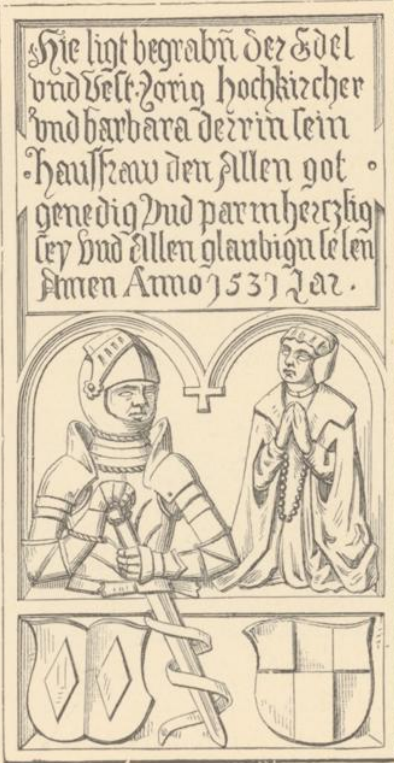 Hie ligt begrabñ der Edel
vnd Vest Jorig hochkircher
vnd barbara derrin sein
hausfraw den Allen got
genedig Vnd parmherczlig
sey vnd Allen glaubign selen
Amen Anno 1531 Jar.